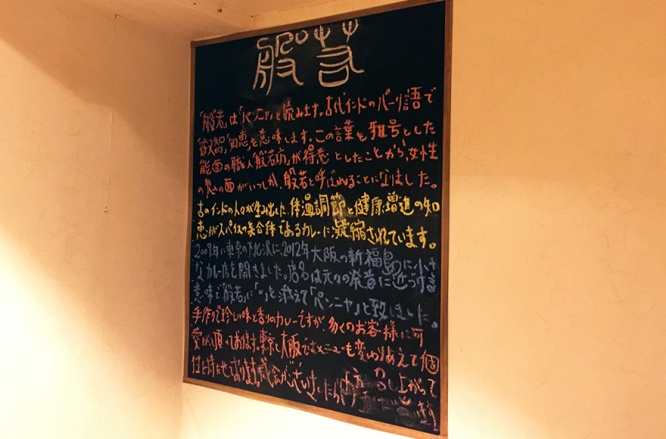 般若
「般若」は「パンニャ」と読みます。古代インドのパーリ語で
「叡智」「知恵」を意味します。この言葉を雅号とした
能面の職人「般若坊」が得意としたことから、女性
の鬼の面がいつしか、般若と呼ばれることになりました。
古のインドの人々が生み出した、体温調節と健康増進の知
恵が、スパイスの集合体であるカレーに凝縮されています。
2007年に東京の下北沢に、2012年大阪の新福島に小さ
なカレー店を開きました。店名は元々の発音に近づける
意味で「般若」に「い」を添えて「パンニャ」と致しました。
手作りで珍しい味と香りのカレーですが、多くのお客様に可
愛がって頂いております。東京と大阪ではメニューも変わりあえて個
性を持たせております。機会がございましたら 上がって